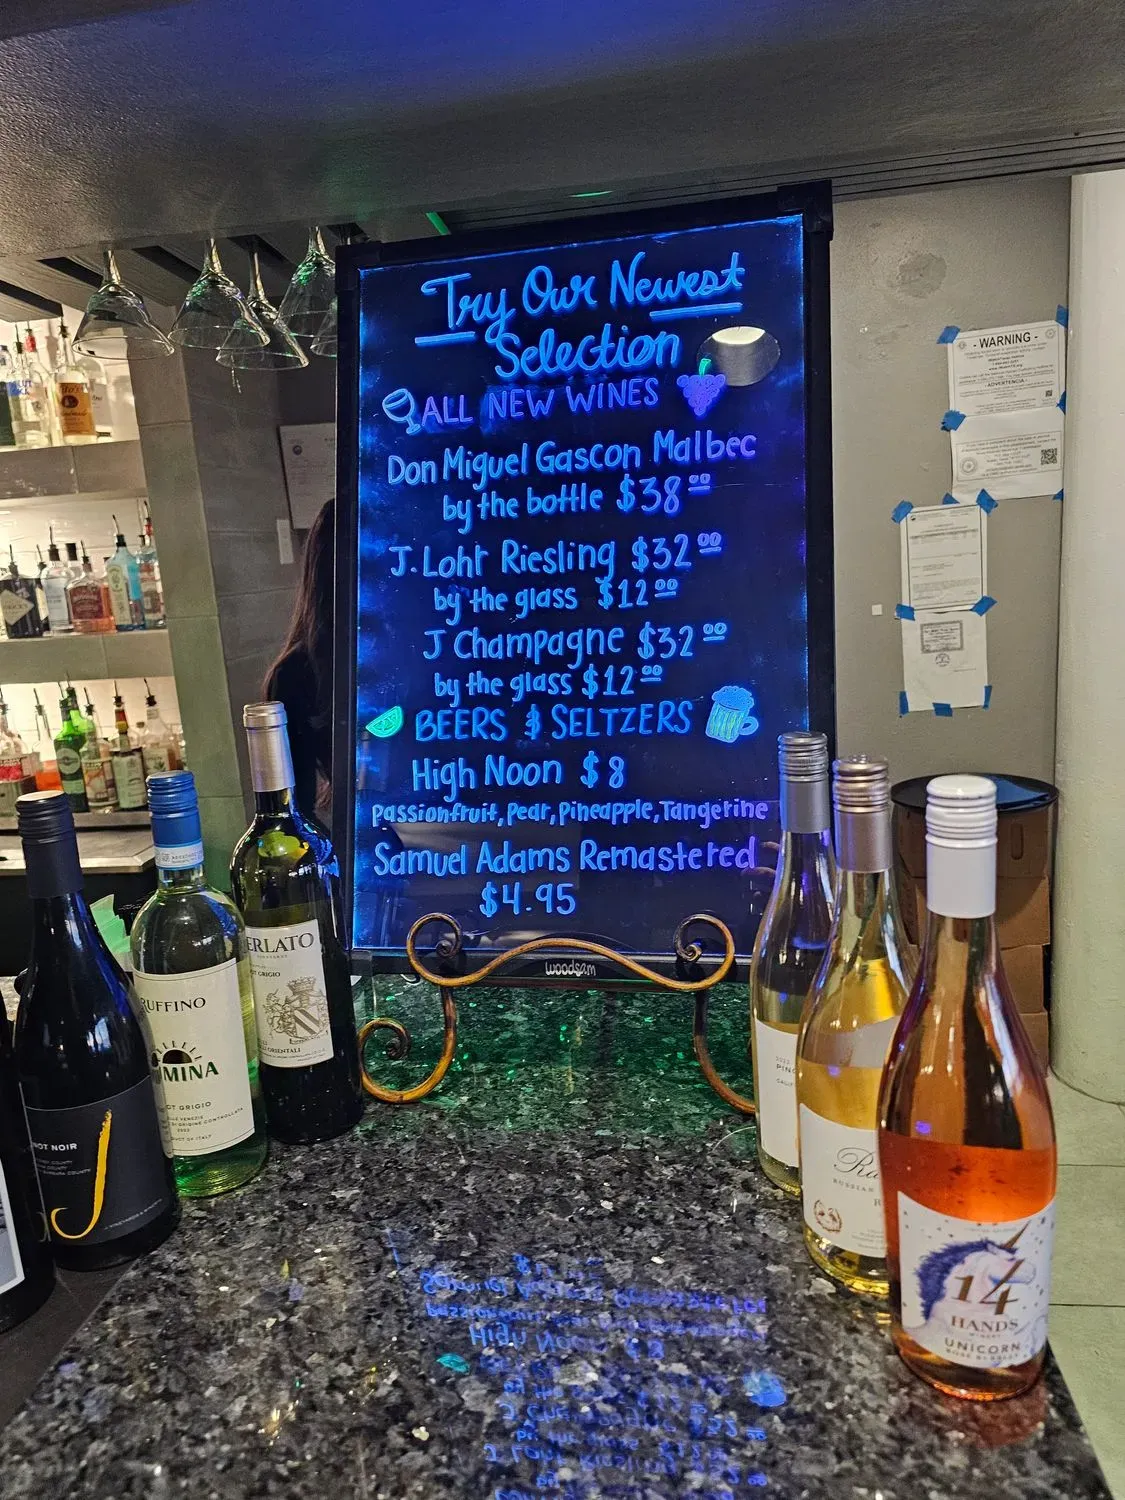 Try Our Newest
Selection
ALL NEW WINES
Don Miguel Gascon Malbec
by the bottle $38.00
J. Lohr Riesling $32.00
by the glass $12.00
J Champagne $32.00
by the glass $12.00
BEERS & SELTZERS
High Noon $8
Passionfruit, Pear, Pineapple, Tangerine
Samuel Adams Remastered
$4.95
woodsam
- WARNING -
- ADVERTENCIA -
NOT NOIR
RUFFINO
MINA
OT GRIGIO
2022
ERLATO
OT GRIGIO
ORIENTALI
2022
PINO
CALIF
RUSSIAN
R
14
HANDS
WINERY
UNICORN